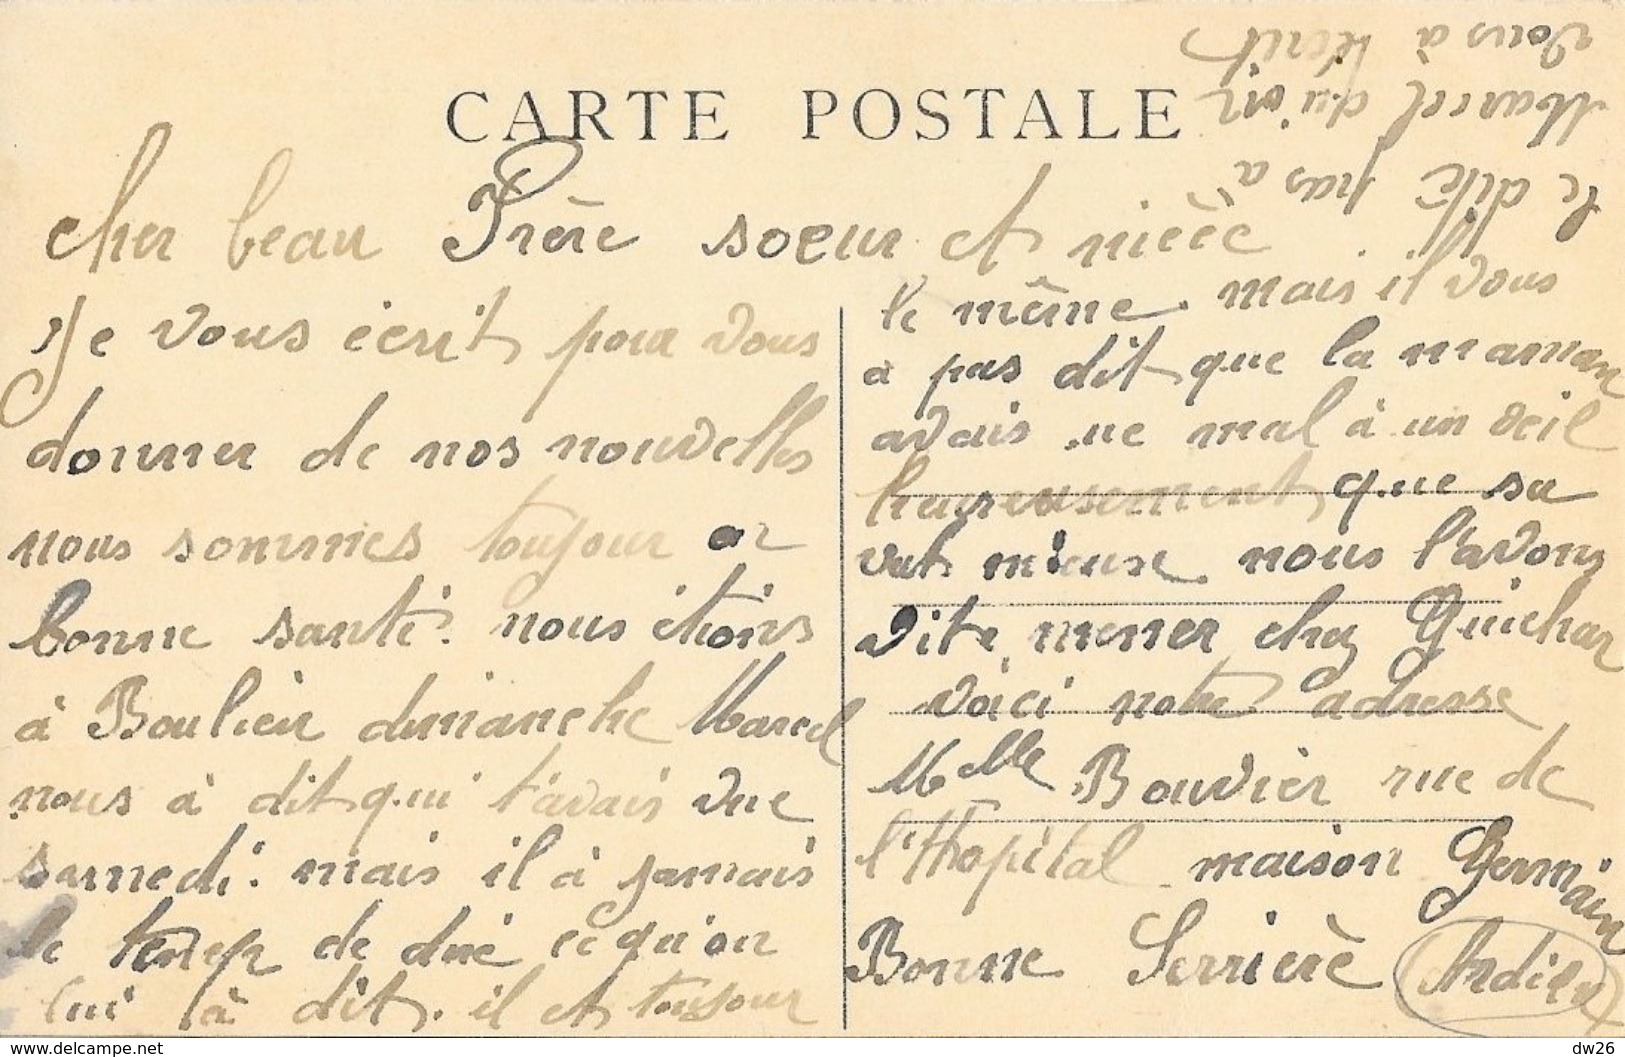 CARTE POSTALE
cher beau Frère soeur et nièce
Je vous écrit pour vous
donner de nos nouvelles
nous sommes toujour en
bonne santé. nous étions
à Boulieu dimanche Marcel
nous à dit qui t'avais vue
samedi. mais il à jamais
le temp de dire ce qu'on
lui à dit. il et toujour
le même. mais il vous
a pas dit que la maman
avais ue mal à un oeil
hureusement que sa
vat mieuse nous l'avons
vite mener chez Guichar
voici notre adresse
Melle Bouvier rue de
l'Hopital maison Germain
Bonne Serrière Ardien
le dite pas a
Marcel qu'on
vous à écrit
dw26
www.delcampe.net